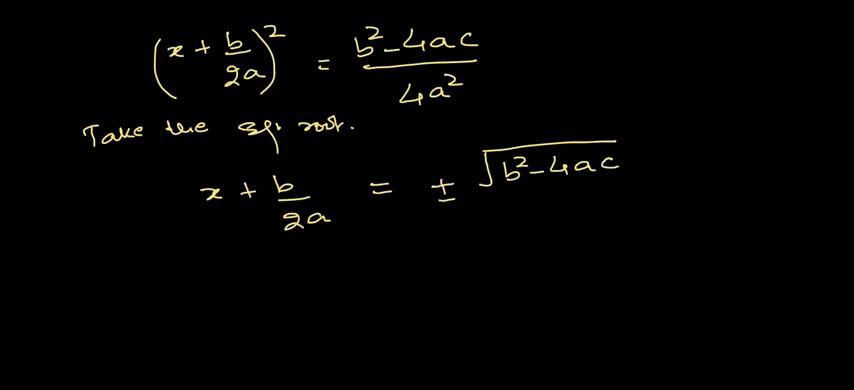 (x + b/2a)² = b² - 4ac / 4a²
Take the sq. root.
x + b/2a = ± √b² - 4ac